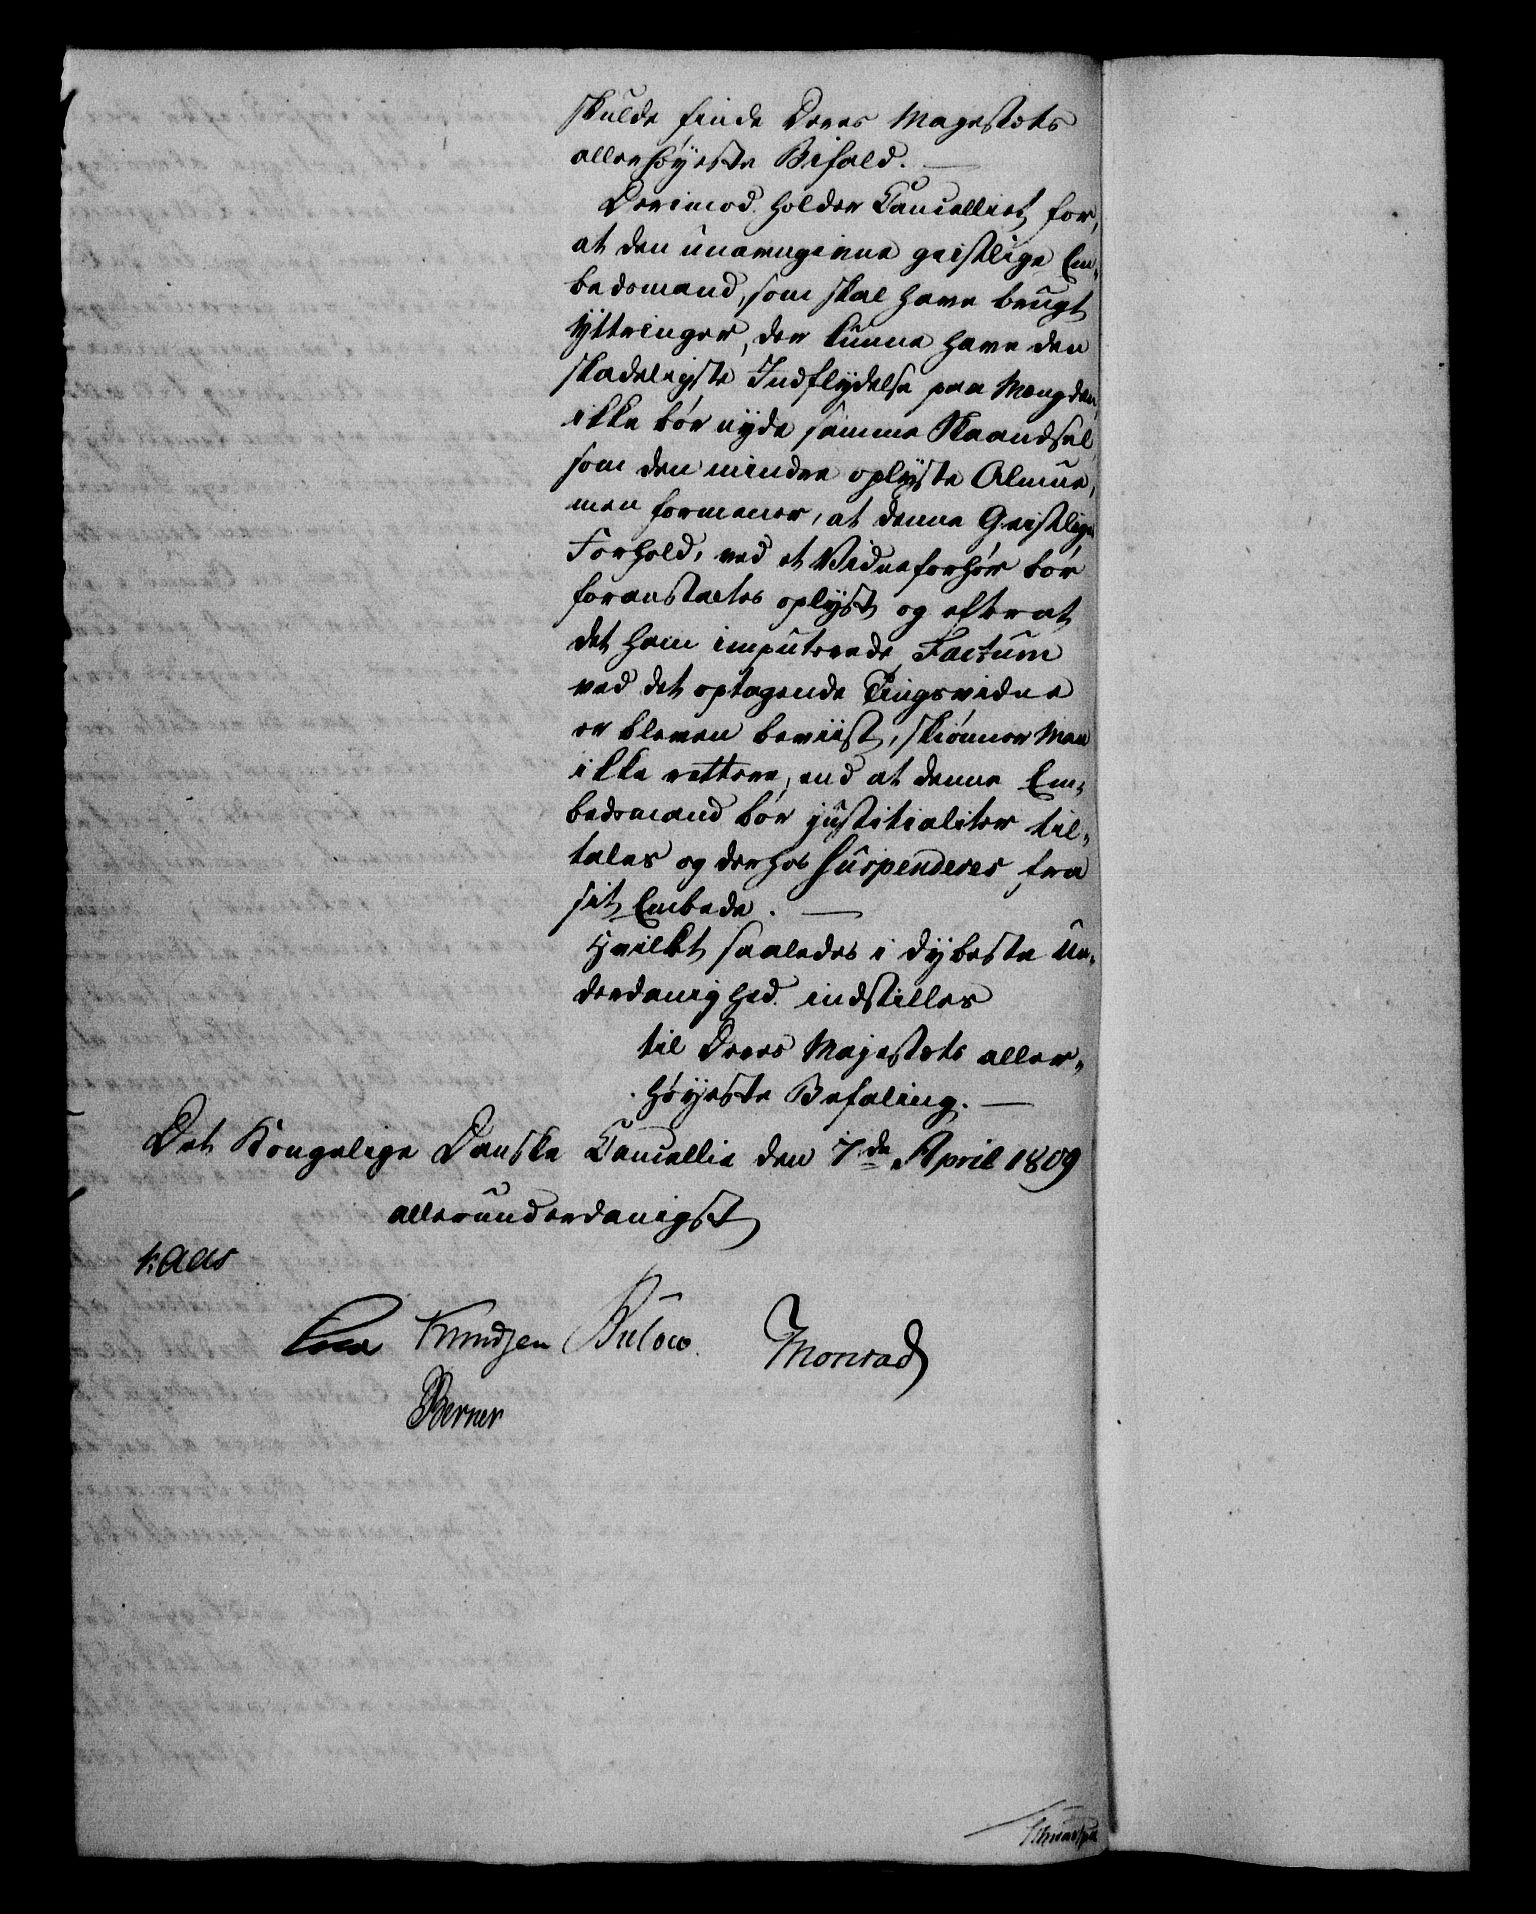 skulde finde Deres Magestæts
allerhøyeste Bifald. —
Derimod holder Cancelliet for,
at den unavngivne geistlige Em-
bedsmand, som skal have brugt
Yttringer, der kunne have den
skadeligste Indflydelse paa Mængden,
ikke bør nyde samme Skaandsel
som den mindre oplyste Almue,
men formener, at denne Geistliges
Forhold, ved et Vidneforhør bør
foranstaltes oplyst og efter at
det ham imputerede Factum
ved det optagende Tingsvidne
er bleven beviist, skiønner Man
ikke rettere, end at denne Em-
bedsmand bør justitialiter til-
tales og derhos Suspenderes fra
sit Embede. —
Hvilket saaledes i dybeste Un-
derdanighed indstilles
til Deres Majestæts aller-
høyeste Befaling. —
Det Kongelige Danske Cancellie den 7de April 1809
allerunderdanigst
Kaas
Knudsen Bülow. Monrad
Berner